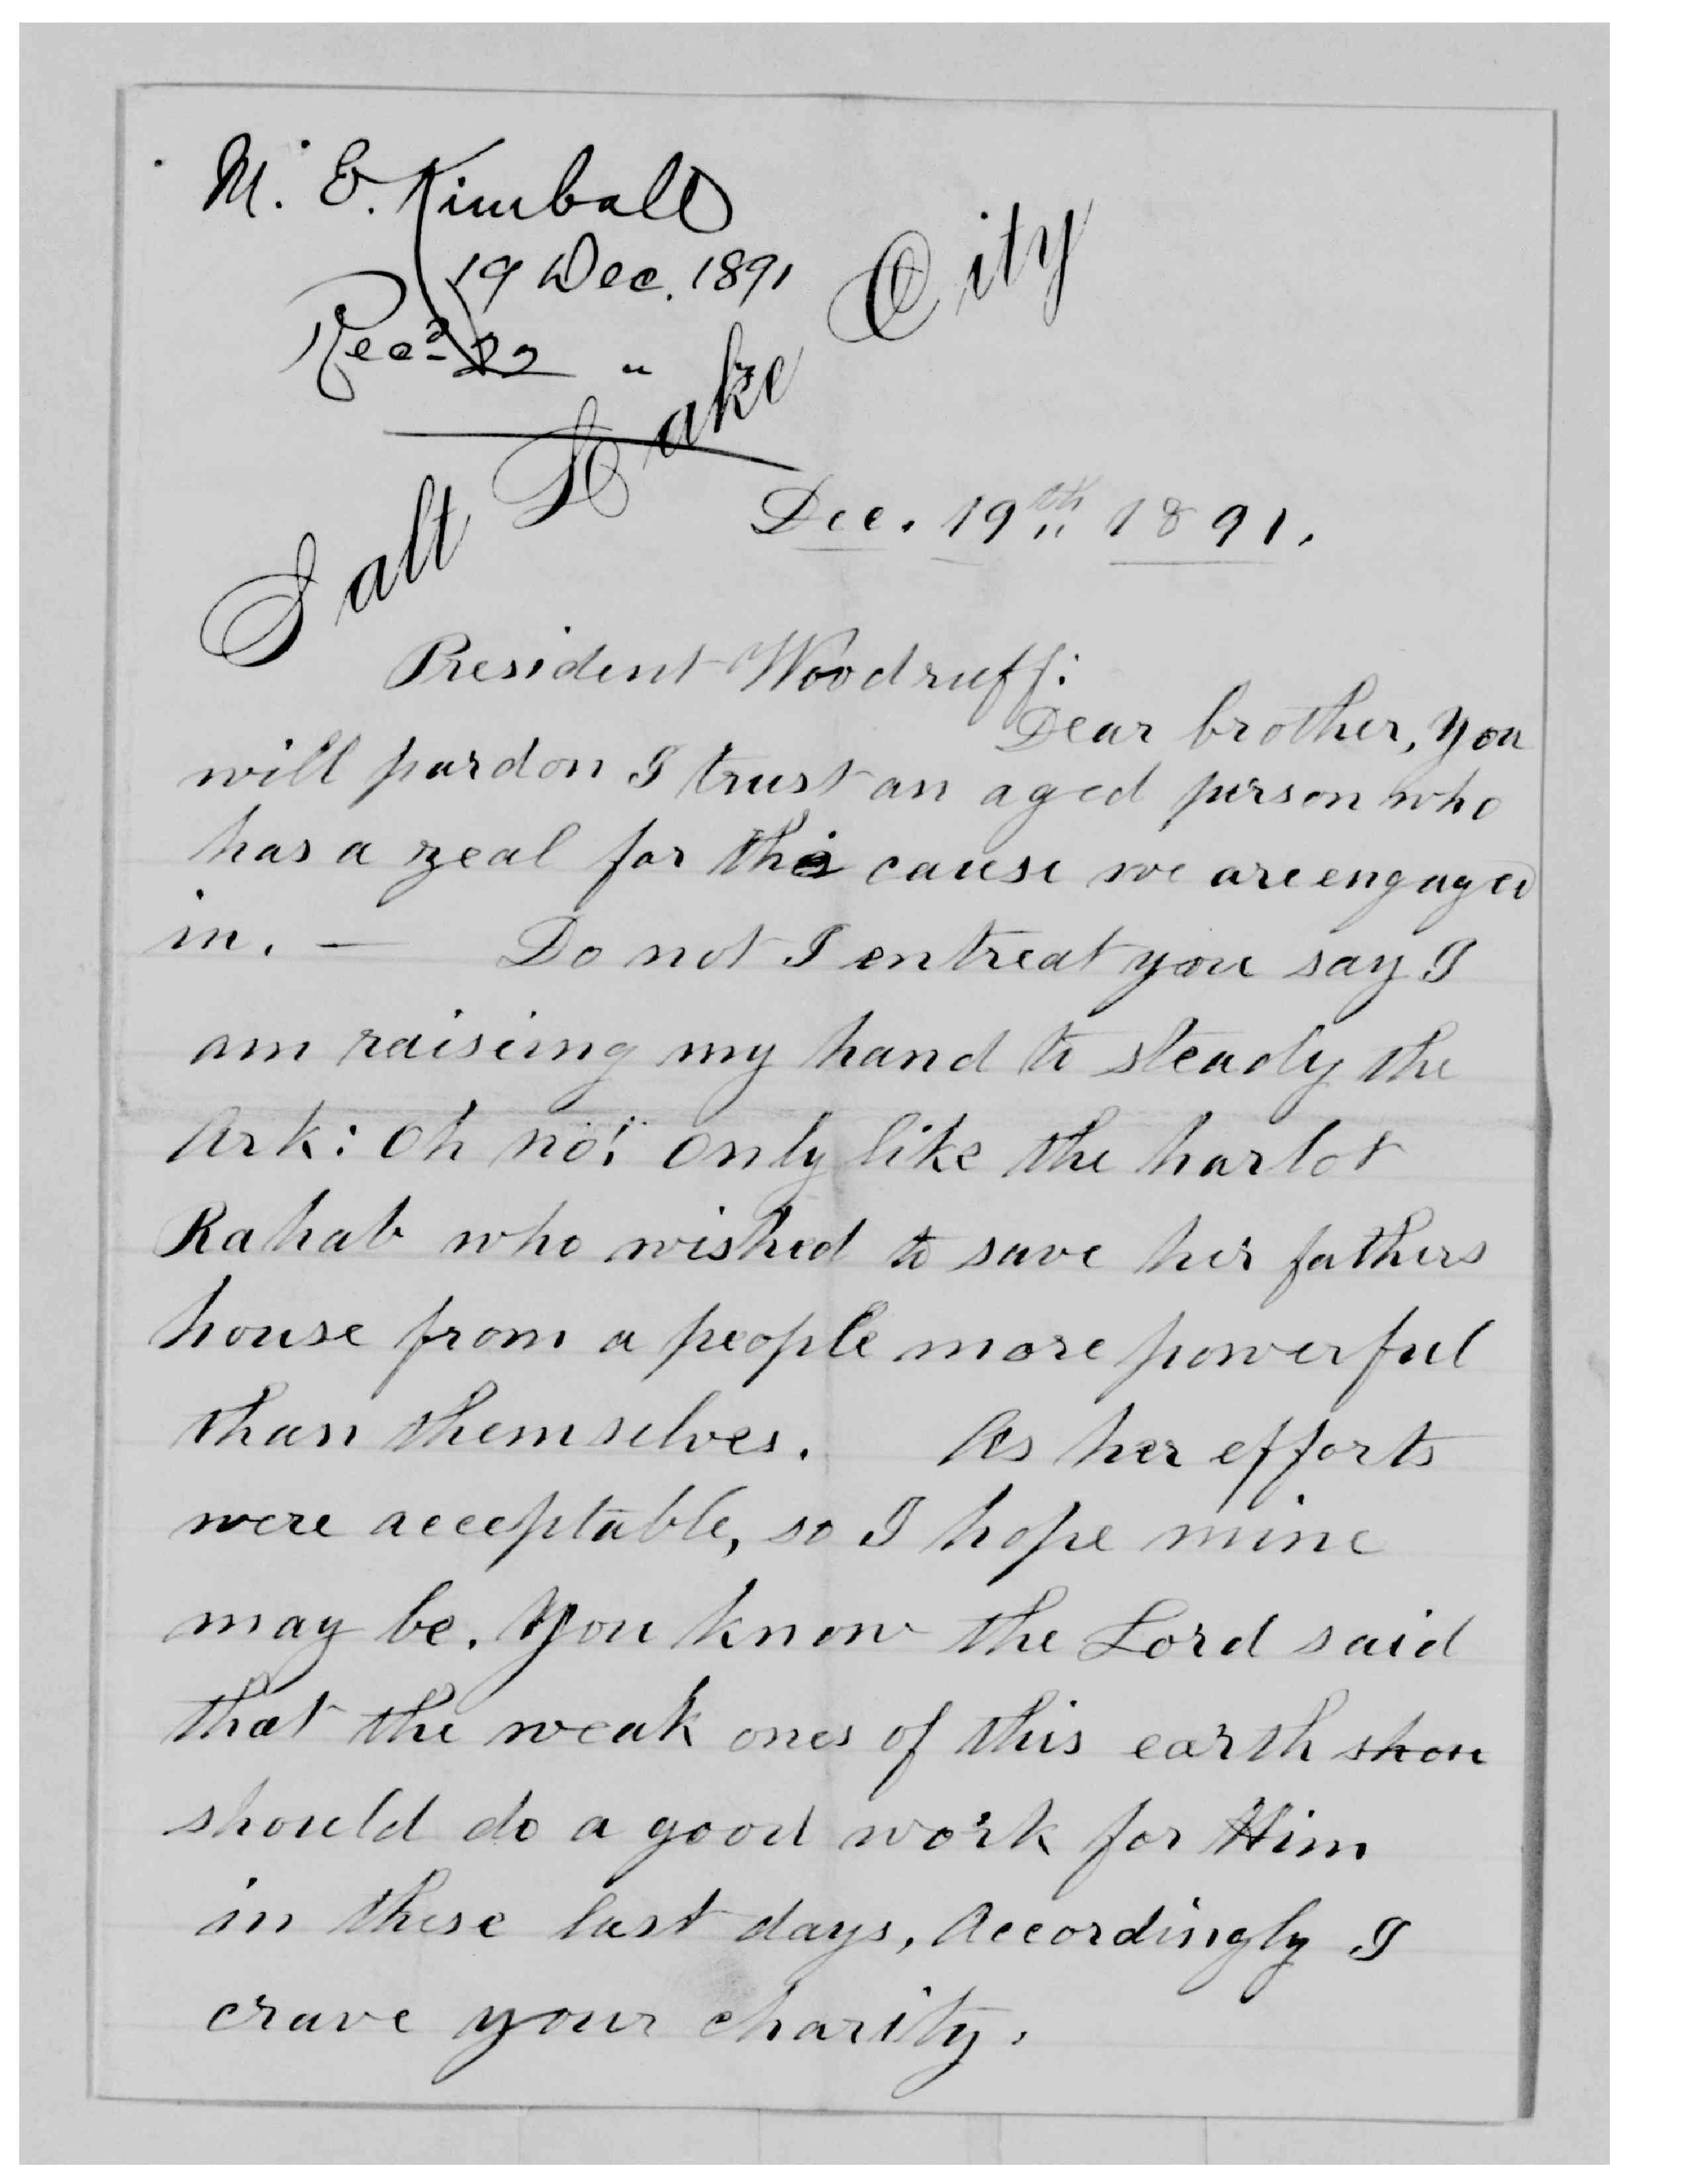 M. E. Kimball
19 Dec. 1891
Recd 22 "
Salt Lake City
Dec. 19th 1891.
President Woodruff:
Dear brother, You
will pardon I trust an aged person who
has a zeal for the cause we are engaged
in. — Do not I entreat you say I
am raiseing my hand to steady the
Ark: Oh no! only like the harlot
Rahab who wished to save her fathers
house from a people more powerful
than themselves. As her efforts
were acceptable, so I hope mine
may be. You know the Lord said
that the weak ones of this earth shou
should do a good work for Him
in these last days, Accordingly I
crave your charity.